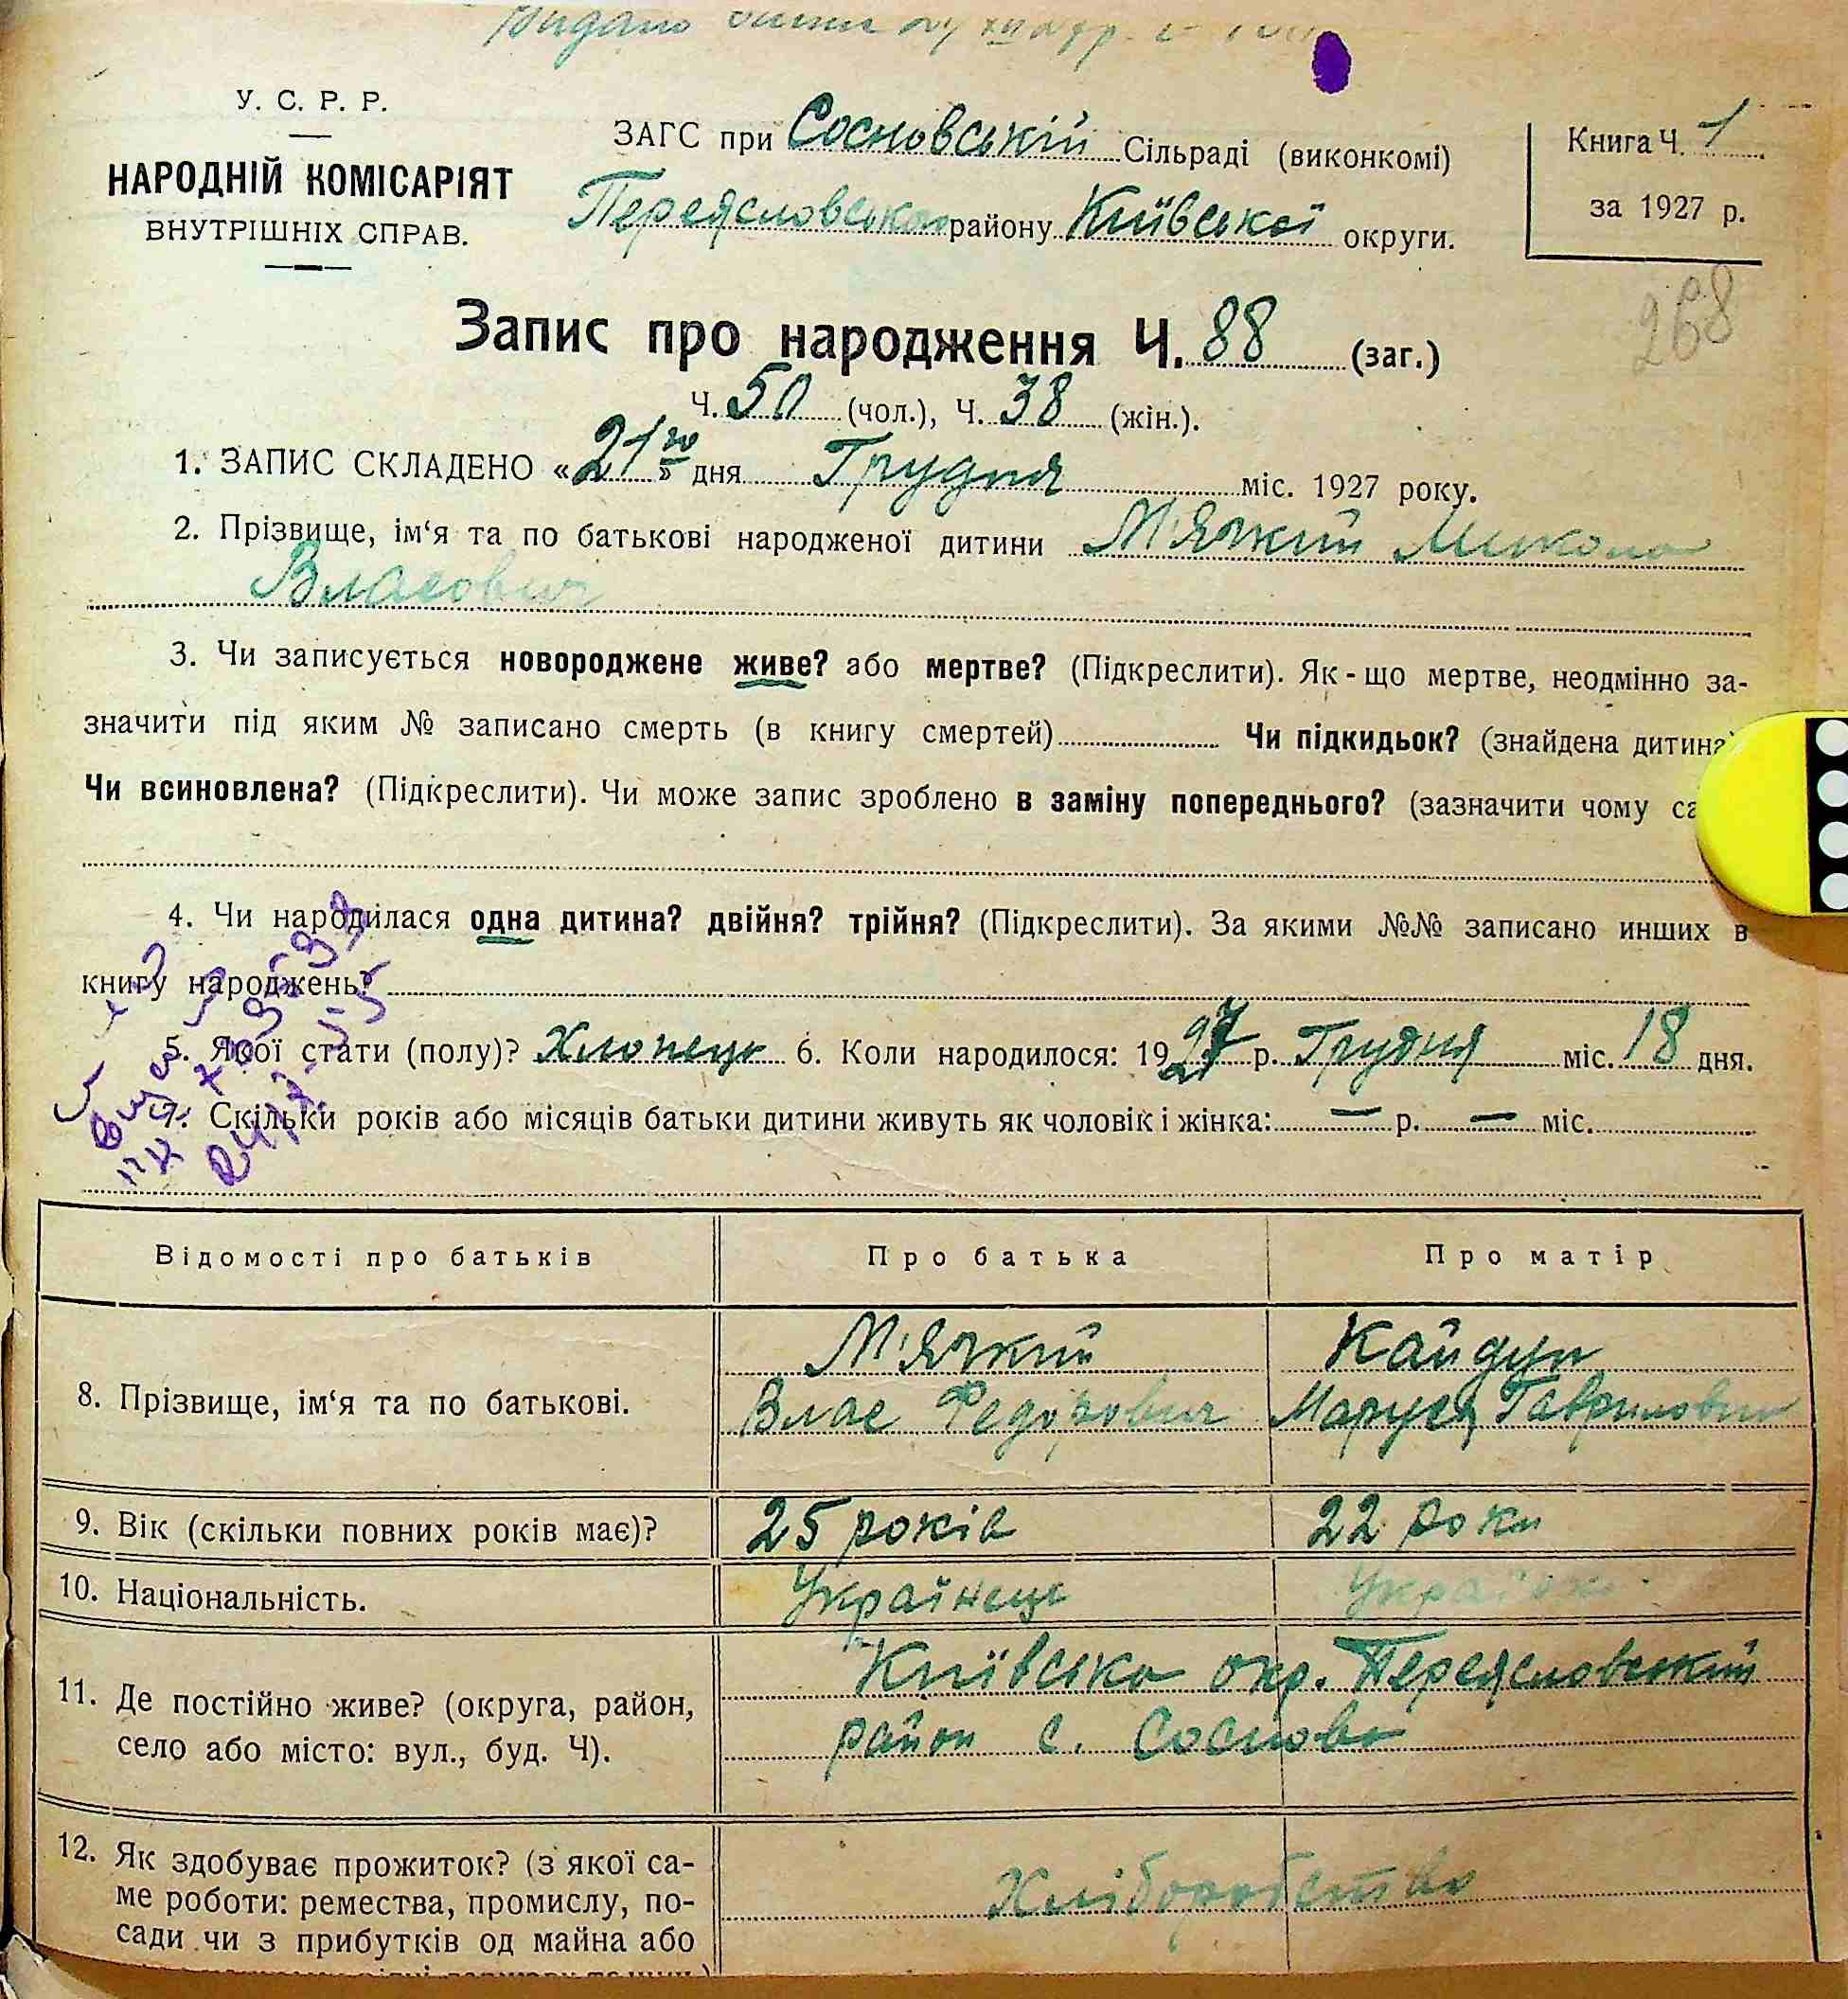 Видано
У. С. Р. Р.
НАРОДНІЙ КОМІСАРІЯТ
ВНУТРІШНІХ СПРАВ.
ЗАГС при Сосновській Сільраді (виконкомі)
Переясловського району Київської округи.
Книга Ч. 1
за 1927 р.
268
Запис про народження Ч. 88 (заг.)
Ч. 50 (чол.), Ч. 38 (жін.).
1. ЗАПИС СКЛАДЕНО «21го» дня Грудня міс. 1927 року.
2. Прізвище, ім‘я та по батькові народженої дитини М'Ягкий Микола
Власович
3. Чи записується новороджене живе? або мертве? (Підкреслити). Як-що мертве, неодмінно за-
значити під яким № записано смерть (в книгу смертей) Чи підкидьок? (знайдена дитина)
Чи всиновлена? (Підкреслити). Чи може запис зроблено в заміну попереднього? (зазначити чому
4. Чи народилася одна дитина? двійня? трійня? (Підкреслити). За якими №№ записано инших в
книгу народжень?
5. Якої стати (полу)? Хлопець 6. Коли народилося: 1927 р. Грудня міс. 18 дня.
7. Скільки років або місяців батьки дитини живуть як чоловік і жінка: — р. — міс.
Відомості про батьків Про батька Про матір
8. Прізвище, ім‘я та по батькові.
М'Ягкий
Влас Федорович
Кайдун
Маруся Гаврилович
9. Вік (скільки повних років має)? 25 років 22 роки
10. Національність. Українець Українка
11. Де постійно живе? (округа, район,
село або місто: вул., буд. Ч).
Київська окр. Переясловський
район с. Соснова
12. Як здобуває прожиток? (з якої са-
ме роботи: ремества, промислу, по-
сади чи з прибутків од майна або
Хліборобство